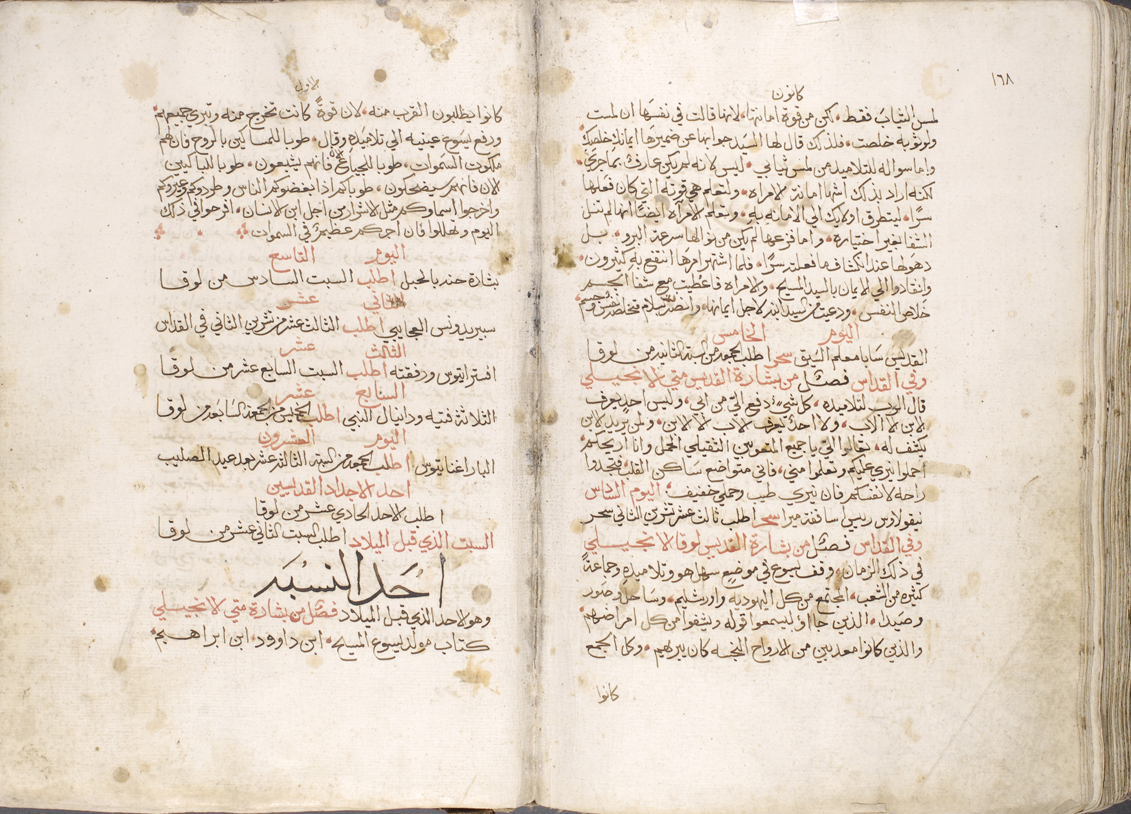 ١٦٨
كانون
لمس الثياب فقط، لكن من قوة امانتها، لانها قالت في نفسها ان لمست
ولو ثوبه خلصت، فلذلك قال لها السيد جوابها عن ضميرها ايمانك خلصك
واما سواله لتلاميذه من لمس ثيابي، ليس لانه لم يكن عارف بما جرى
لكنه اراد بذلك اشهار امانة الامراه، ولتعلم هي قوته التي كان فعلها
سرًا، ليتطرق اوليك الى الامانه به، ولتعلم الامراه ايضًا انها لم تنل
الشفا بغير اختياره، واما فزعها لم يكن من نوالها سرعة البرو، بل
دهولها عند انكشاف ما فعلته سرًا، فلما اشتهر امرها انتفع به كثيرون،
وانقادوا الى الايمان بالسيد المسيح، والامراه فاعطيت مع شفا الجسم
خلاص النفس، ودعيت من السيد ابنه لاجل ايمانها،
اليوم الخامس
القديس سابا معلم السيق سحر اطلب الجمعه من السبة الثانيه من لوقا
وفي القداس فصل من بشارة القديس متى الانجيلي
قال الرب لتلاميذه، كل شيء دفع اليّ من ابي، وليس احد يعرف
الابن الا الاب، ولا احد يعرف الاب الا الابن، ولمن يريد الابن
يكشف له، تعالوا اليّ يا جميع المتعوبين الثقيلي الحمل وانا اريحكم،
احملوا نيري عليكم وتعلموا مني، فاني متواضع ساكن القلب، فتجدوا
راحه لانفسكم فان نيري طيب وحملي خفيف، اليوم السادس
نيقولاوس رييس اساقفة ميرا سحر اطلب ثالث عشر تشرين الثاني سحر
وفي القداس فصل من بشارة القديس لوقا الانجيلي
في ذلك الزمان، وقف يسوع في موضع سهل هو وتلاميذه وجماعة
كثيره من الشعب، المجتمع من كل اليهوديه واورشليم، وساحل وصور
وصيدا، الذين جااوا ليسمعوا قوله ويشفوا من كل امراضهم
والذين كانوا معدبين من الارواح النجسه كان يبريهم، وكل الجمع
كانوا
الاول
كانوا يطلبون القرب منه، لان قوةً كانت تخرج منه وتبري جميعهم
ورفع يسوع عينيه الى تلاميذه وقال، طوبا للمساكين بالروح فان لهم
ملكوت السموات، طوبا للجياع فانهم يشبعون، طوبا للباكيين
الان فانهم سيضحكون، طوباكم اذا ابغضوكم الناس وطردوكم وعيروكم
واخرجوا اسماوكم مثل الاشرار من اجل ابن الانسان، افرحوا في ذلك
اليوم وتهللوا فان اجركم عظيم في السموات
اليوم التاسع
بشارة حنه بالحبل اطلب السبت السادس من لوقا
الثاني عشر
سبيريدونس العجايبي اطلب الثالث عشر من تشرين الثاني في القداس
الثالث عشر
افستراتيوس ورفقته اطلب السبت السابع عشر من لوقا
السابع عشر
الثلاثة فتيه ودانيال النبي اطلب الخميس من لوقا
اليوم العشرون
البار اغناتيوس اطلب الجمعه من السبة الثالثة عشر بعد عيد الصليب
احد الاجداد القديسين
اطلب الاحد الحادي عشر من لوقا
السبت الذي قبل الميلاد اطلب السبت الثاني عشر من لوقا
احد النسبه
وهو الاحد الذي قبل الميلاد فصل من بشارة متى الانجيلي
كتاب مولد يسوع المسيح، ابن داوود، ابن ابراهيم،